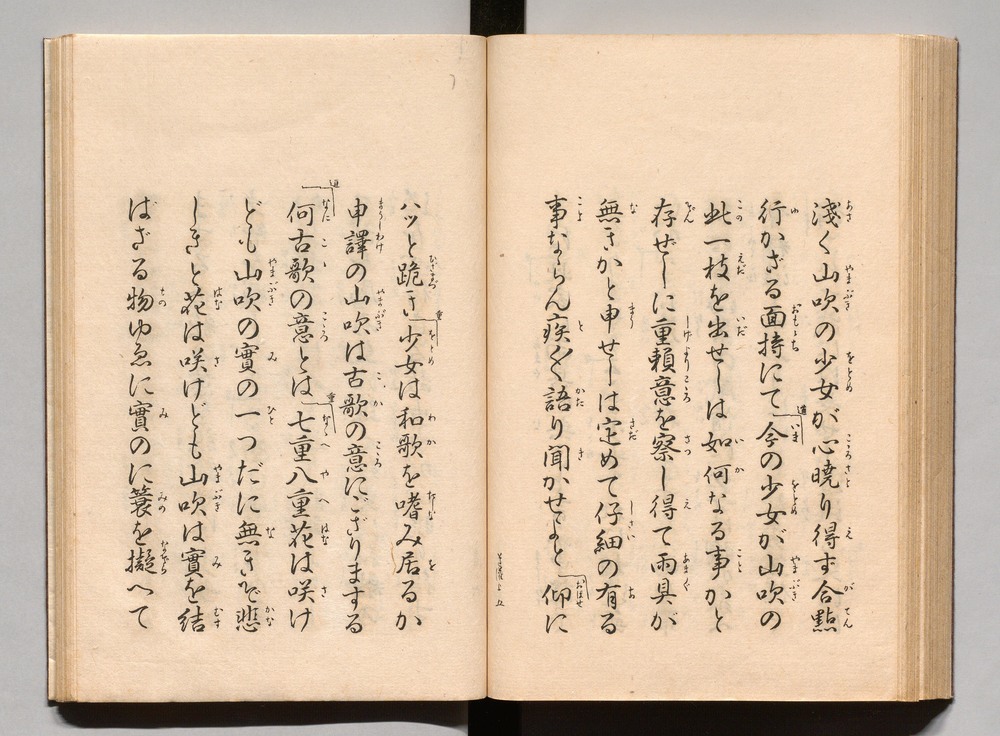 淺く山吹の少女が心曉り得ず合點
行かざる面持にて今の少女が山吹の
此一枝を出せしは如何なる事かと
存ぜしに重頼意を察し得て雨具が
無きかと申せしは定めて仔細の有る
事ならん疾く〳〵語り聞かせよと仰に
ハッと跪き少女は和歌を嗜み居るか
申譯の山吹は古歌の意にござりまする
何古歌の意とは七重八重花は咲け
ども山吹の實の一つだに無きぞ悲
しきと花は咲けども山吹は實を結
ばざる物ゆゑに實のに簑を擬へて